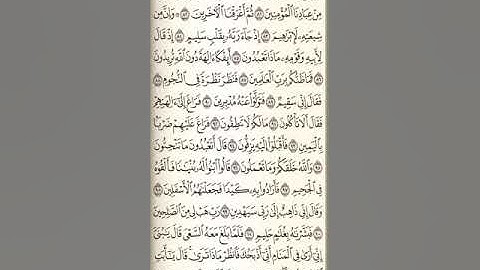 مِنْ عِبَادِنَا الْمُؤْمِنِينَ ۝٨١ ثُمَّ أَغْرَقْنَا الْآخَرِينَ ۝٨٢ ۞ وَإِنَّ مِن
شِيعَتِهِ لَإِبْرَاهِيمَ ۝٨٣ إِذْ جَاءَ رَبَّهُ بِقَلْبٍ سَلِيمٍ ۝٨٤ إِذْ قَالَ
لِأَبِيهِ وَقَوْمِهِ مَاذَا تَعْبُدُونَ ۝٨٥ أَئِفْكًا آلِهَةً دُونَ اللَّهِ تُرِيدُونَ
۝٨٦ فَمَا ظَنُّكُم بِرَبِّ الْعَالَمِينَ ۝٨٧ فَنَظَرَ نَظْرَةً فِي النُّجُومِ ۝٨٨
فَقَالَ إِنِّي سَقِيمٌ ۝٨٩ فَتَوَلَّوْا عَنْهُ مُدْبِرِينَ ۝٩٠ فَرَاغَ إِلَى آلِهَتِهِمْ
فَقَالَ أَلَا تَأْكُلُونَ ۝٩١ مَا لَكُمْ لَا تَنطِقُونَ ۝٩٢ فَرَاغَ عَلَيْهِمْ ضَرْبًا
بِالْيَمِينِ ۝٩٣ فَأَقْبَلُوا إِلَيْهِ يَزِفُّونَ ۝٩٤ قَالَ أَتَعْبُدُونَ مَا تَنْحِتُونَ
۝٩٥ وَاللَّهُ خَلَقَكُمْ وَمَا تَعْمَلُونَ ۝٩٦ قَالُوا ابْنُوا لَهُ بُنْيَانًا فَأَلْقُوهُ
فِي الْجَحِيمِ ۝٩٧ فَأَرَادُوا بِهِ كَيْدًا فَجَعَلْنَاهُمُ الْأَسْفَلِينَ ۝٩٨
وَقَالَ إِنِّي ذَاهِبٌ إِلَى رَبِّي سَيَهْدِينِ ۝٩٩ رَبِّ هَبْ لِي مِنَ الصَّالِحِينَ
۝١٠٠ فَبَشَّرْنَاهُ بِغُلَامٍ حَلِيمٍ ۝١٠١ فَلَمَّا بَلَغَ مَعَهُ السَّعْيَ قَالَ يَا بُنَيَّ
إِنِّي أَرَى فِي الْمَنَامِ أَنِّي أَذْبَحُكَ فَانظُرْ مَاذَا تَرَى قَالَ يَا أَبَتِ